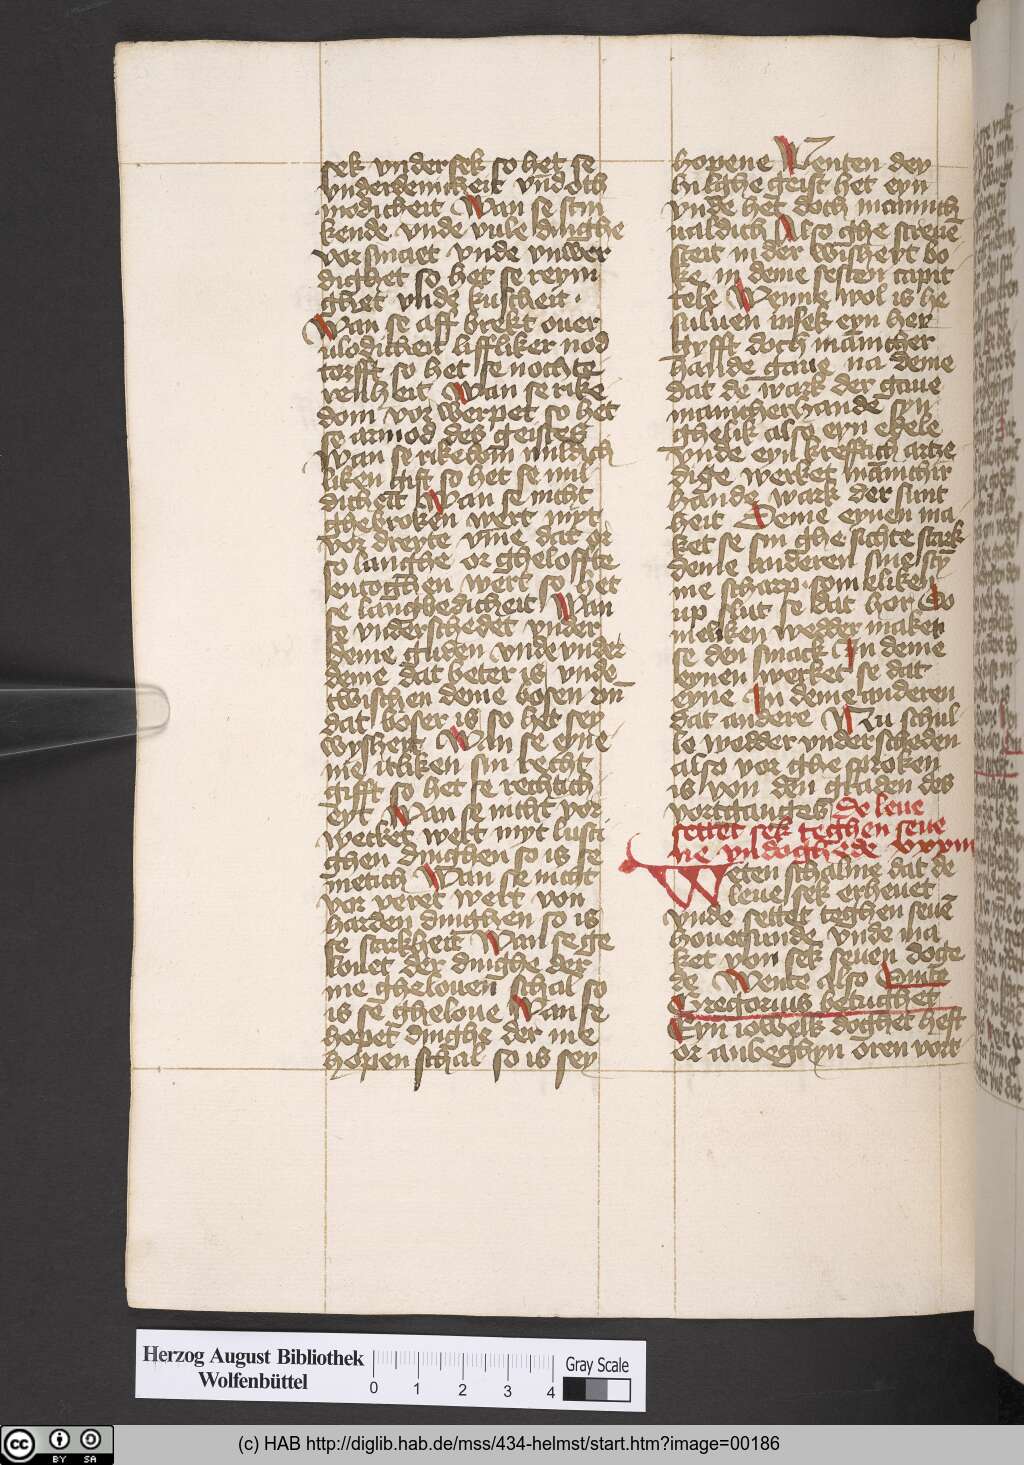 sek vnder sek so het se
vnderdenicheit vnd oth
modicheit Wan se stin
kende vnde vule dinghe
vor smaet vnde vnwer
dighet so het se reyni
ghet vnde kuscheit ·
Wan se aff brekt ouer
vlodicheit liffliker nod
torfft so het se nochte
renheit Wan se rike
dom vor werpet so het
se armod des geistes
Wan se rikedom mildich
liken gift so het se mil
dicheit Wan se nicht
ghebroken wert myt
vor dreyte vme dat or
so langhe or gheloffte
entoghen wert so het
se langhedicheit Wan
se vnderschedet vnder
deme guden vnde vnder
deme dat beter is vnde
twischen deme bosen vn̄
dat boser is so het sey
wysheit Wan se eyne
me itliken sin recht
gifft so het se rechtich
eyt Wan se nicht vor
wecket wert myt lusti
ghen dinghen so is se
metich Wan se nicht
vor veret wert von
harden dinghen so is
se sterkheit Wan se ge
louet der dinghe der
me ghelouen schal so
is se ghelove Wan se
hopet dinghs der me
hopen schal so is sey
hopene Wenten dey
hilghe geist het eyn
vnde het doch mannich
ualdich Also ghe screuē
steit in der wisheyt bo
ke in deme sesten capit
tele Wenne wol is he
suluen in sek eyn her
gyfft doch mānicher
hande gaue na deme
dat de wark der gaue
mannicherhande syn
ghelik also eyn ekele
vnde eyn krefftich artze
dige werket mānichir
hande wark der sunt
heit Deme eynen ma
ket se sin ghe sichte stark
deme anderen sine sty̅
me scharp · someliken
up slut se dat hor So
meliken wedder maket
se den smack In deme
eynen werket se dat
eyne In deme anderen
dat andere Nu schul
le wedder vnderscheden
also vor ghe sproken
is von den graden des
vortganges De leue
settet sek teghen seue
ne vndoghede xxviii
Weten schalme dat de
leue sek erheuet
vnde settet teghen seuē
houetsunde vnde ma
ket von sek seuen doge
de Wente also Sunte
Gregorius betughet
Eyn iowelk doghet heft
or anbeghyn oren vort
Herzog August Bibliothek
Wolfenbüttel
0 1 2 3 4
Gray Scale
cc BY SA
(c) HAB http://diglib.hab.de/mss/434-helmst/start.htm?image=00186